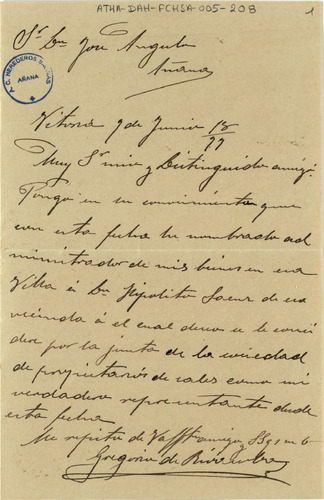 ATHA-DAH-FCHSA-005-208
1
Sr. Dn. José Angulo
Añana
P. C. HEREDEROS SALINAS
AÑANA
Vitoria 9 de Junio 18/99
Muy Sr. mio y Distinguido amigo:
Pongo en su conocimiento que
con esta fecha he nombrado ad
ministrador de mis bienes en esa
Villa á Dn. Hipolito Saenz de esa
vecindad á el cual deseo se le consi
dere por la junta de la sociedad
de propietarios de sales como mi
verdadero representante desde
esta fecha
Me repito de V. afft. amigo y SS q s m b
Gregorio de